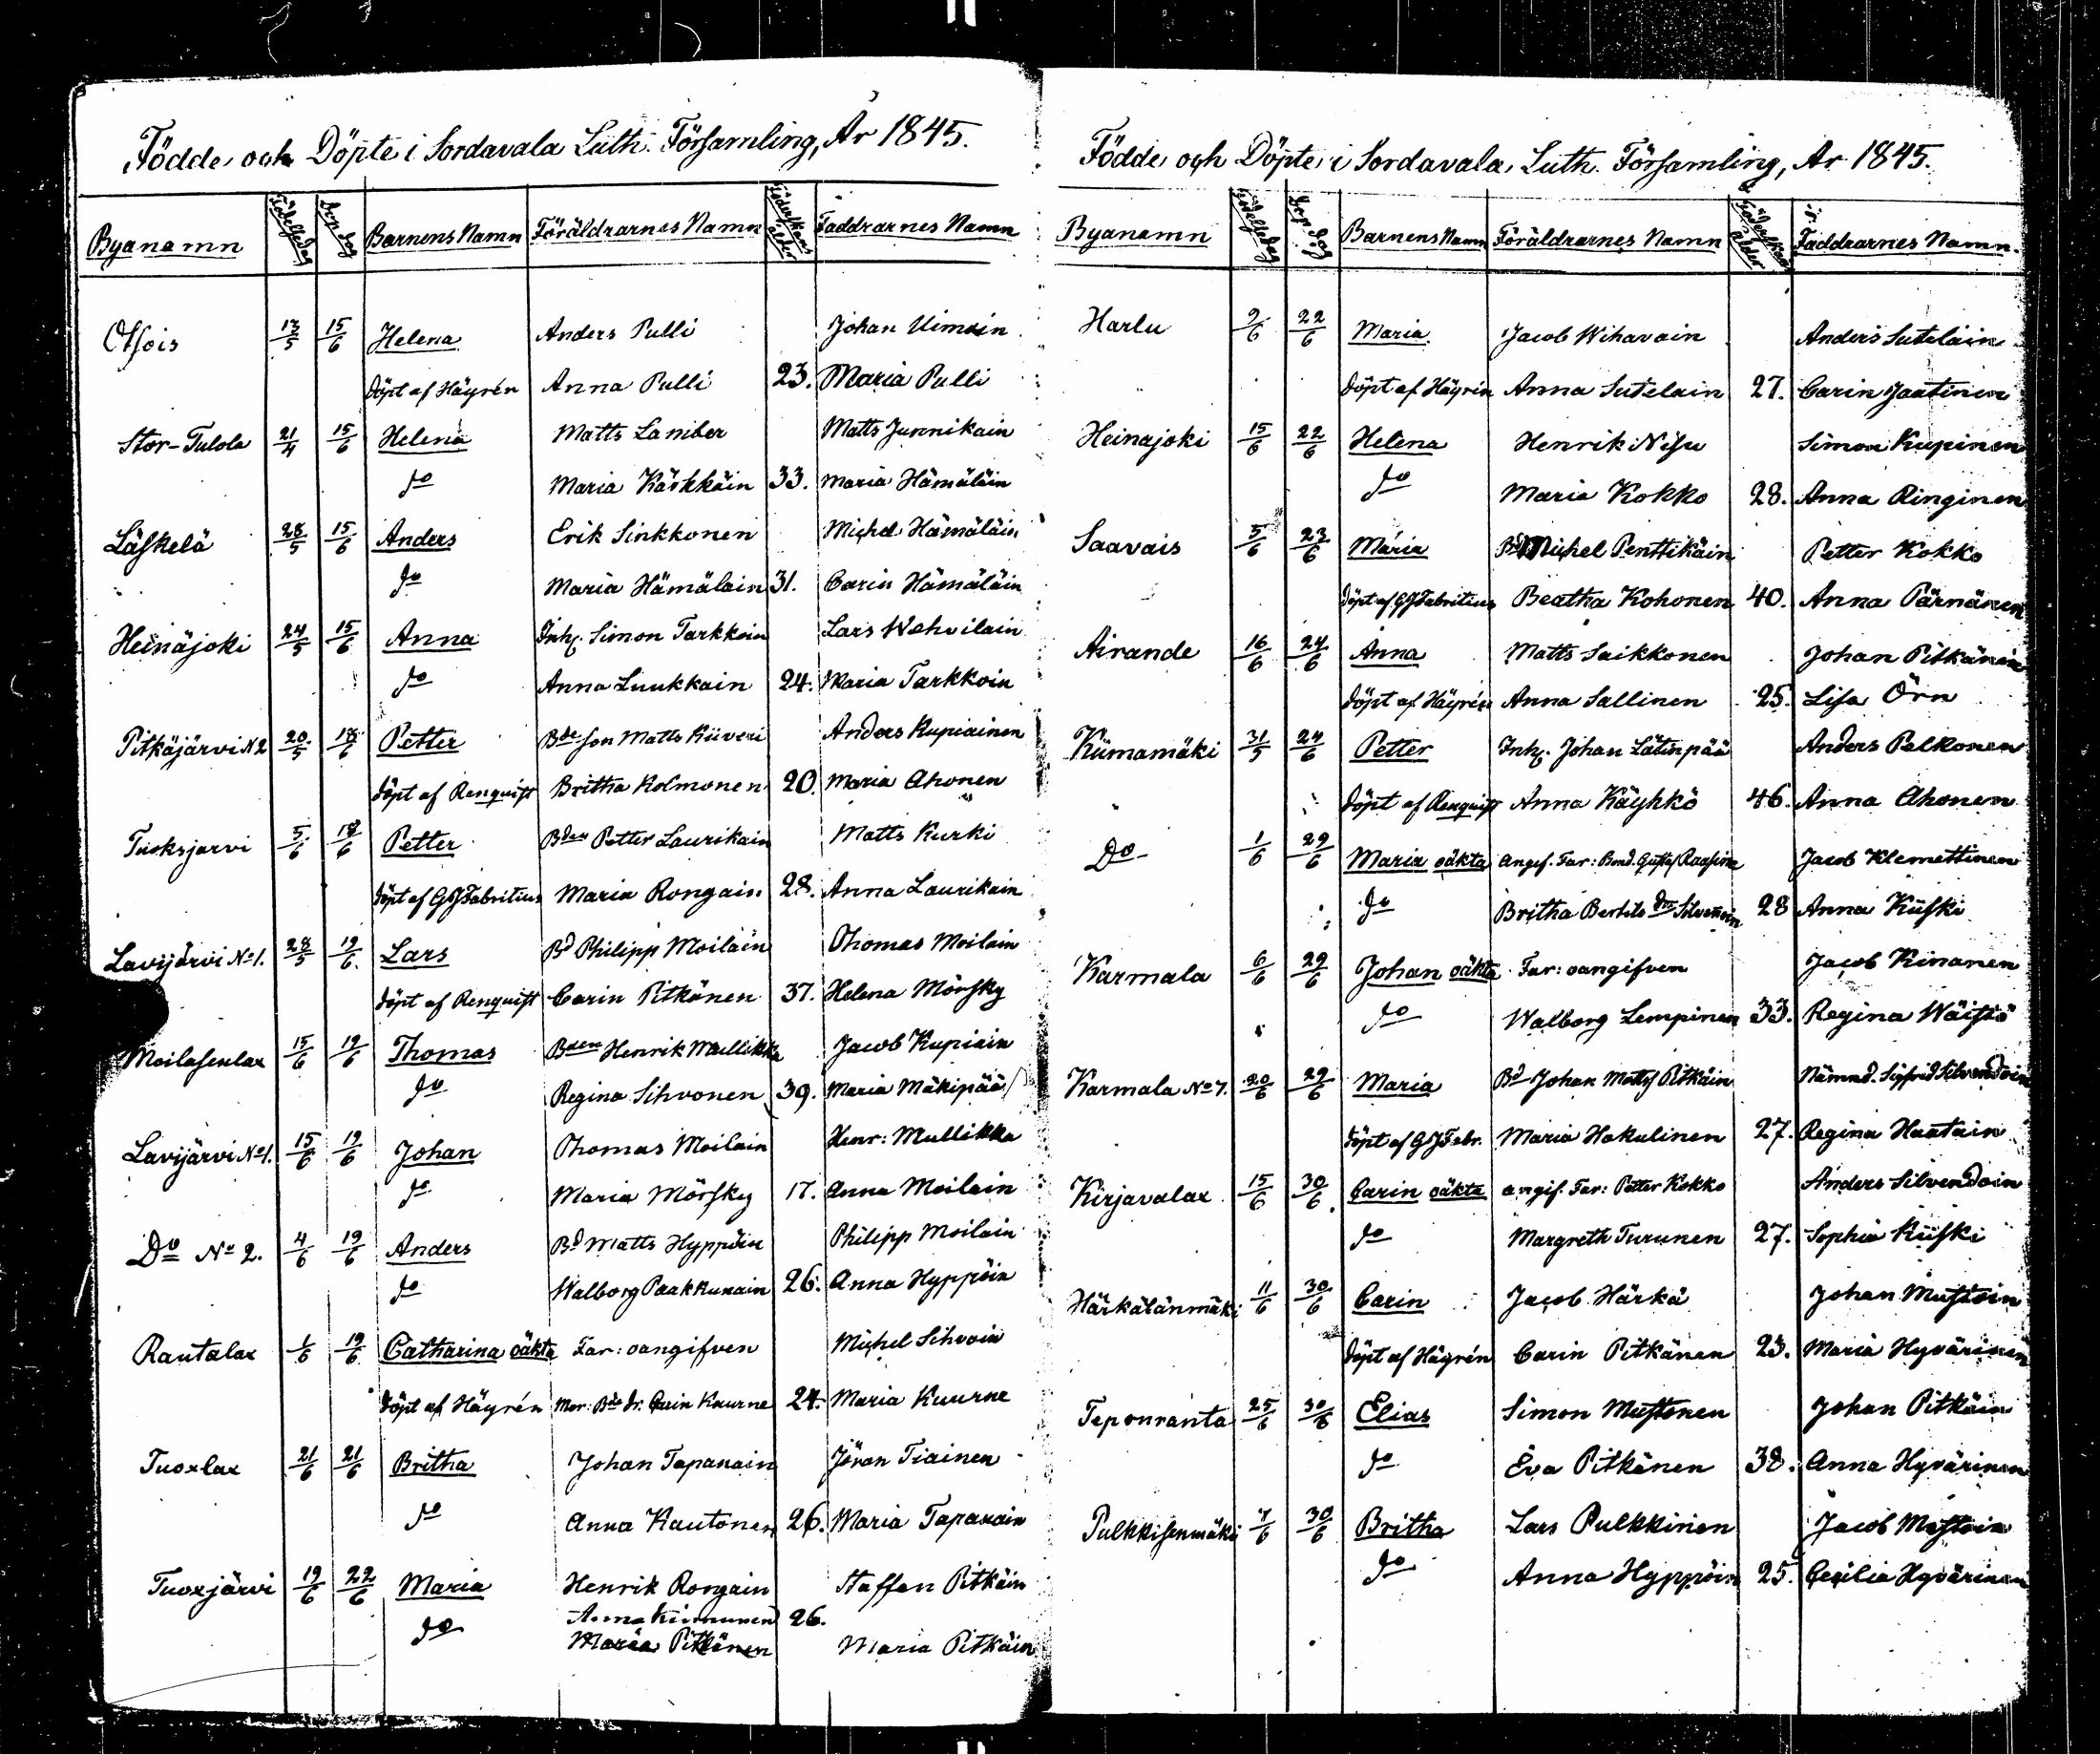 Födde och Döpte i Sordavala Luth. Församling, År 1845.
Byanamn Födelsedag Dop dag Barnens Namn Föräldrarnes Namn Föderskans ålder Faddrarnes Namn
Otsois 13/5 15/6 Helena Anders Pulli Johan Uimoin
döpt af Häyrén Anna Pulli 23. Maria Pulli
Stor-Tulola 21/4 15/6 Helena Matts Lamber Matts Junnikain
do Maria Kärkkäin 33. Maria Hämäläin
Läskelä 28/5 15/6 Anders Erik Sinkkonen Michel Hämäläin
do Maria Hämälain 31. Carin Hämäläin
Heinäjoki 24/5 15/6 Anna Inh. Simon Tarkkoin Lars Wehvilain
do Anna Luukkain 24. Maria Tarkkoin
Pitkäjärvi N2 20/5 18/6 Petter Bde son Matts Kiiveri Anders Kupiainen
döpt af Renquist Britha Kolmonen 20. Maria Ahonen
Tuoksjarvi 5/6 18/6 Petter Bden Petter Laurikain Matts Kurki
döpt af GJFabritius Maria Rongain 28. Anna Laurikain
Lavijärvi No 1. 28/5 19/6. Lars Bd Philipp Moilain Thomas Moilain
döpt af Renquist Carin Pitkänen 37. Helena Mörsky
Moilasenlax 15/6 19/6 Thomas Bden Henrik Mullikka Jacob Kupiain
do Regina Sihvonen 39. Maria Mäkipää
Lavijärvi No 1. 15/6 19/6 Johan Thomas Moilain Henr: Mullikka
do Maria Mörsky 17. Anna Moilain
Do No 2. 4/6 19/6 Anders Bd Matts Hyppöin Philipp Moilain
do Walborg Paakkunain 26. Anna Hyppöin
Rautalax 1/6 19/6 Catharina oäkta Far: oangifven Michel Sihvoin
döpt af Häyrén Mor: Bde dr. Carin Kuurne 24. Maria Kuurne
Tuoxlax 21/6 21/6 Britha Johan Tapanain Jöran Tiainen
do Anna Kautonen 26. Maria Tapanain
Tuoxjärvi 19/6 22/6 Maria Henrik Rongain Staffan Pitkäin
do Anna Kinnunen 26.
Maria Pitkänen Maria Pitkäin
Födde och Döpte i Sordavala Luth. Församling, År 1845.
Byanamn Födelsedag Dop dag Barnens Namn Föräldrarnes Namn Föderskans ålder Faddrarnes Namn.
Harlu 9/6 22/6 Maria Jacob Wihavain Anders Sutelain
döpt af Häyrén Anna Sutelain 27. Carin Jaatinen
Heinajoki 15/6 22/6 Helena Henrik Nisu Simon Kupinen
do Maria Kokko 28. Anna Ringinen
Saavais 5/6 23/6 Maria Bd Michel Penttikäin Petter Kokko
döpt af GJFabritius Beatha Kohonen 40. Anna Pärnänen
Airande 16/6 24/6 Anna Matts Saikkonen Johan Pitkänen
döpt af Häyrén Anna Sallinen 25. Lisa Örn
Kiimamäki 31/5 24/6 Petter Inh. Johan Lätinpää Anders Pelkonen
döpt af Renquist Anna Käyhkö 46. Anna Ahonen
Do 1/6 29/6 Maria oäkta angif. Far: Bond. Gustaf Raasina Jacob Klemettinen
do Britha Bertils dr. Silvennoin 28 Anna Kiiski
Karmala 6/6 29/6 Johan oäkta Far: oangifven Jacob Kinanen
do Walborg Lempinen 33. Regina Wäistö
Karmala No 7. 20/6 29/6 Maria Bd Johan Matts Pitkäin Nämnd. Sigfrid Silvendoin
döpt af GJFabr. Maria Hakulinen 27. Regina Haatain
Kirjavalax 15/6 30/6. Carin oäkta angif. Far: Petter Kokko Anders Silvendoin
do Margreth Turunen 27. Sophia Kiiski
Härkälänmäki 11/6 30/6 Carin Jacob Härkä Johan Mustoin
döpt af Häyrén Carin Pitkänen 23. Maria Hyvärinen
Teponranta 25/6 30/6 Elias Simon Mustonen Johan Pitkäin
do Eva Pitkänen 38. Anna Hyvärinen
Pulkkisenmäki 7/6 30/6 Britha Lars Pulkkinen Jacob Mustoin
do Anna Hyppöin 25. Cecilia Hyvärinen